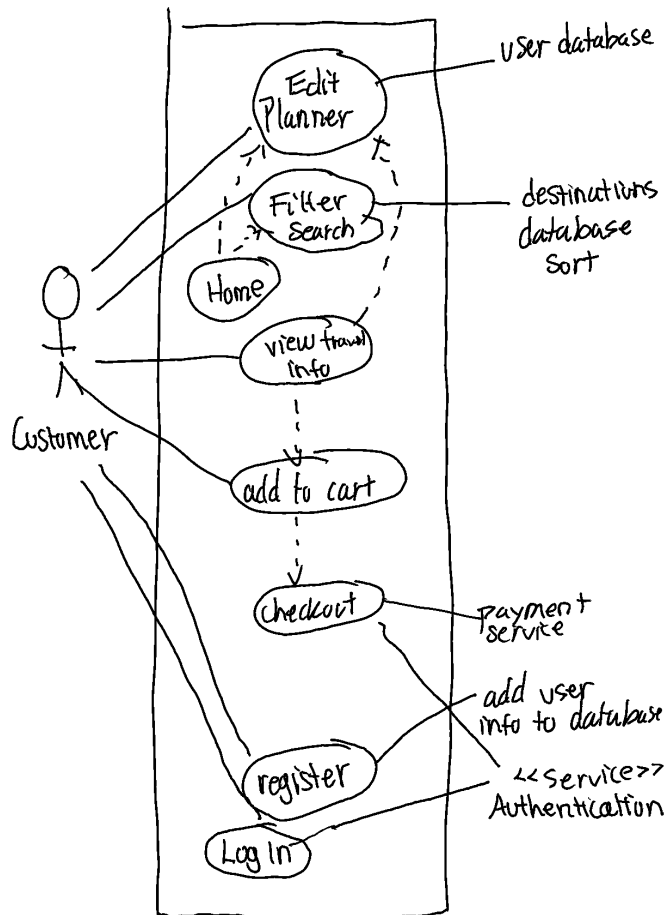 user database
Edit
Planner
Filter
search
destinations
database
sort
Home
view travel
info
Customer
add to cart
checkout
payment
service
add user
info to database
register
<<service>>
Authentication
Log In